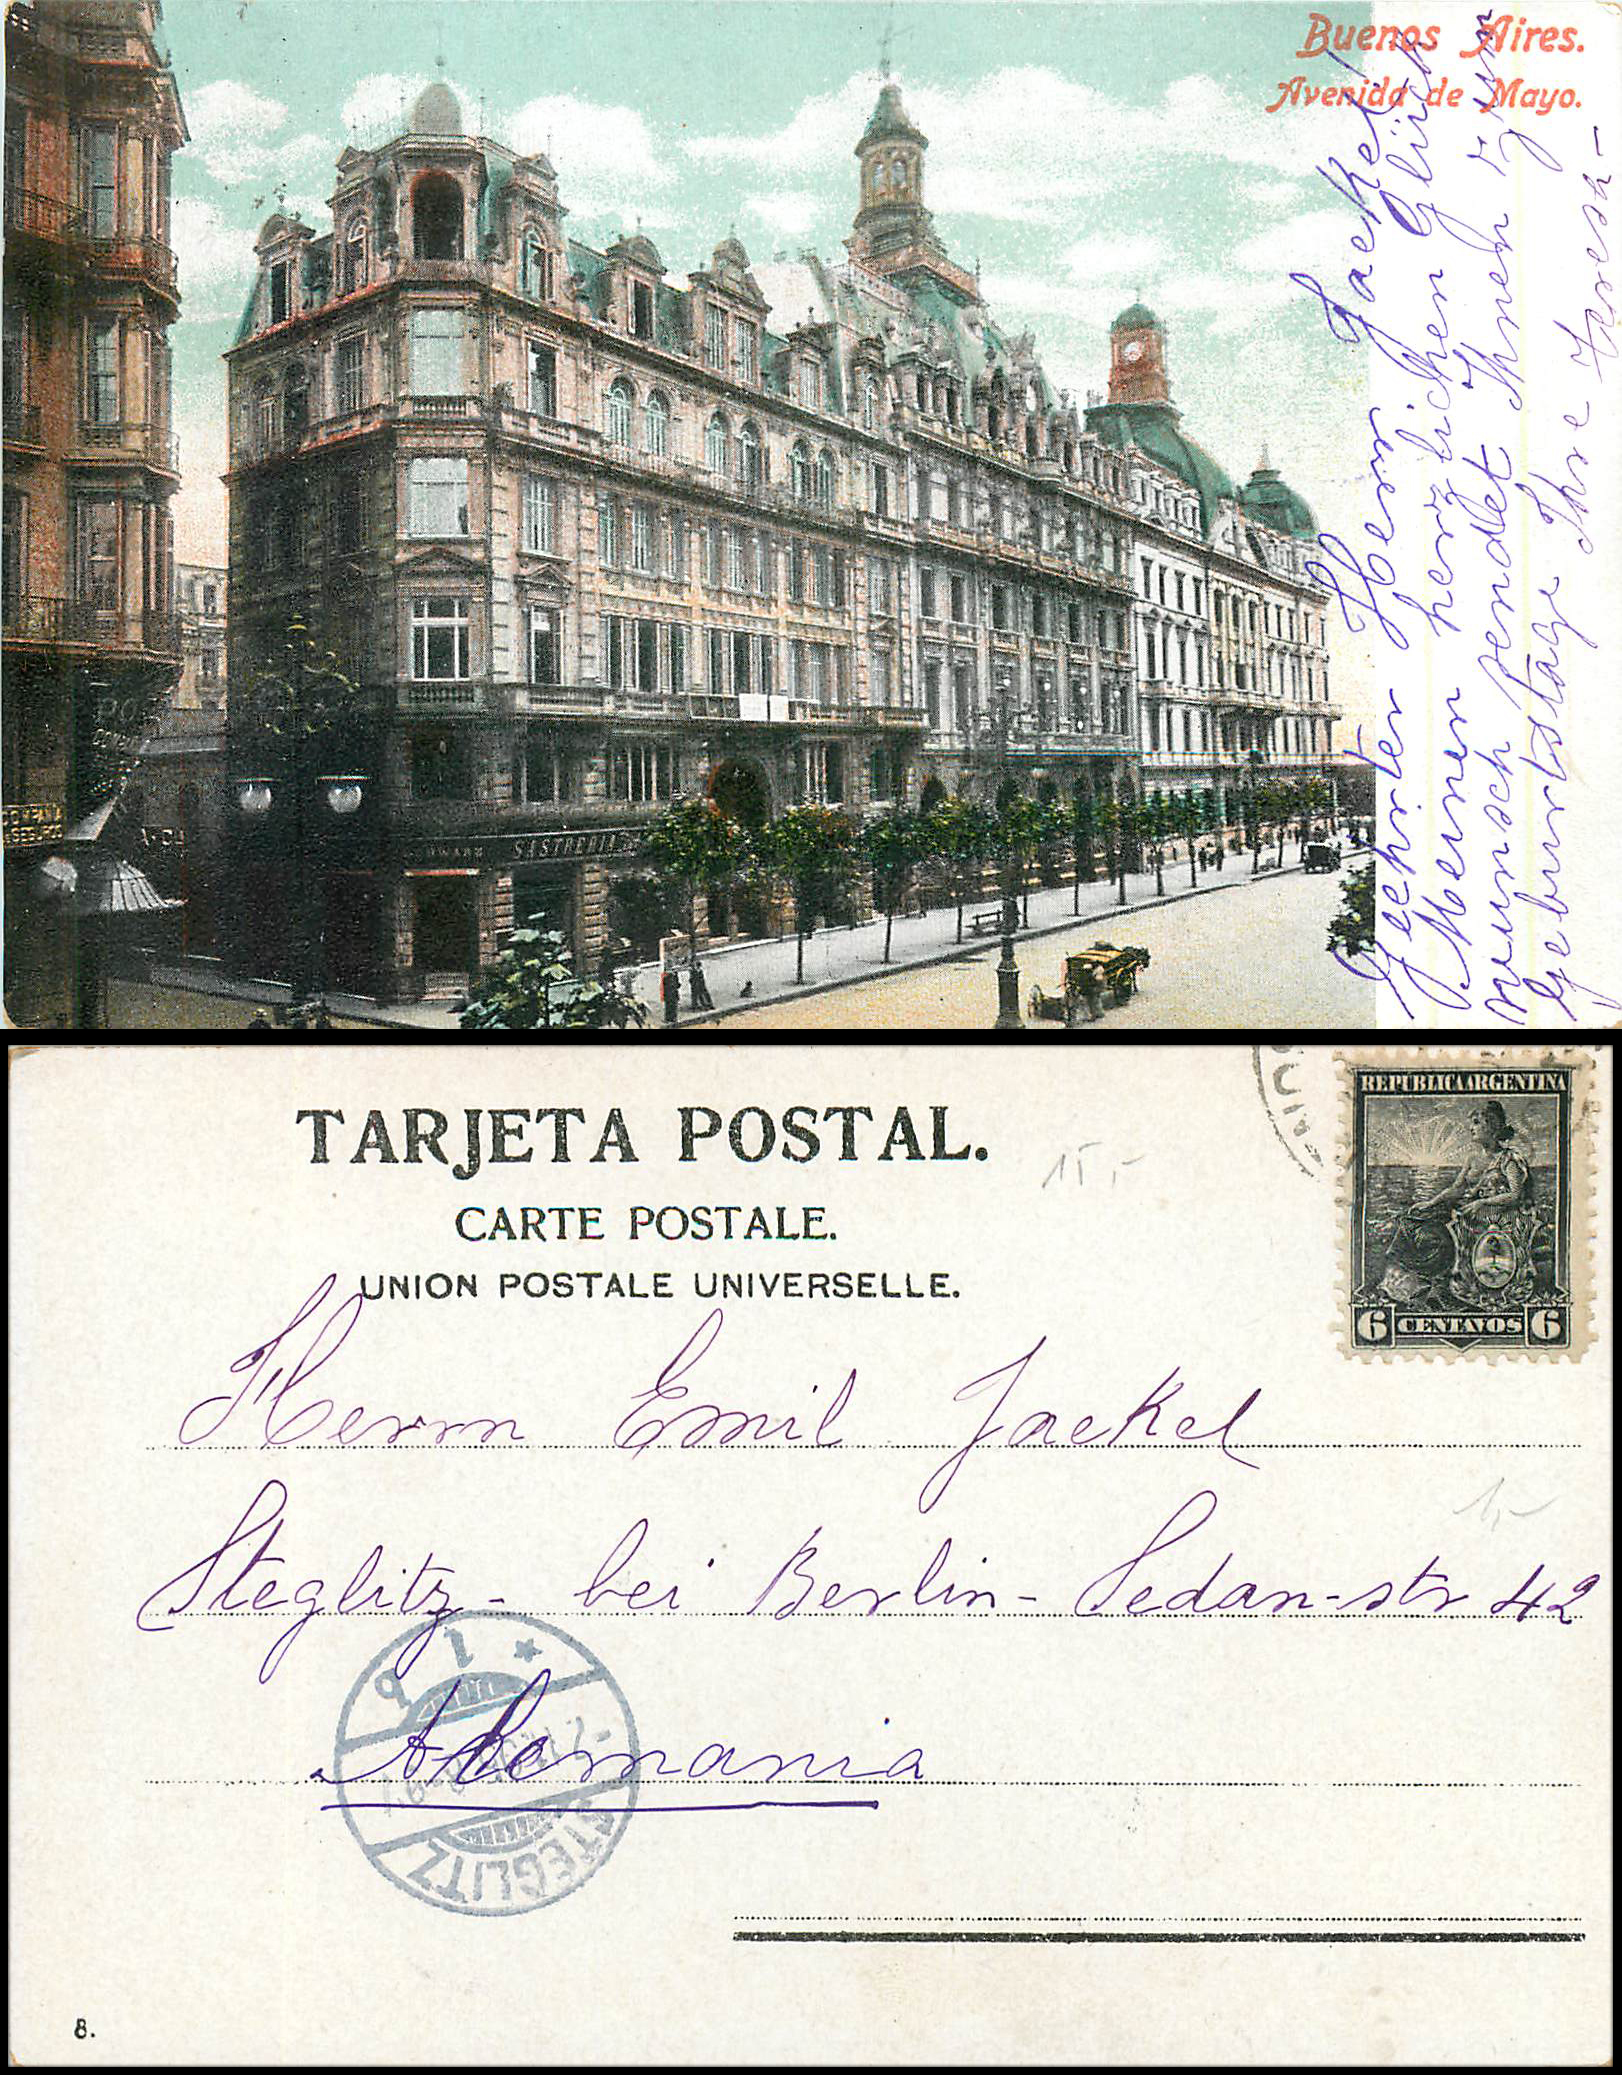 Buenos Aires.
Avenida de Mayo.
Geehrter Herrn Jaekel!
Meinen herzlichen Glück
wunsch sendet Ihnen zum
Geburtstage Ihre
COMPAÑIA
SEGUROS
SASTRERIA
TARJETA POSTAL.
CARTE POSTALE.
UNION POSTALE UNIVERSELLE.
REPÚBLICA ARGENTINA
6 CENTAVOS 6
15,-
Herrn Emil Jaekel
1,-
Steglitz - bei Berlin - Sedan-str 42
Alemania
STEGLITZ
* 1 b
8.